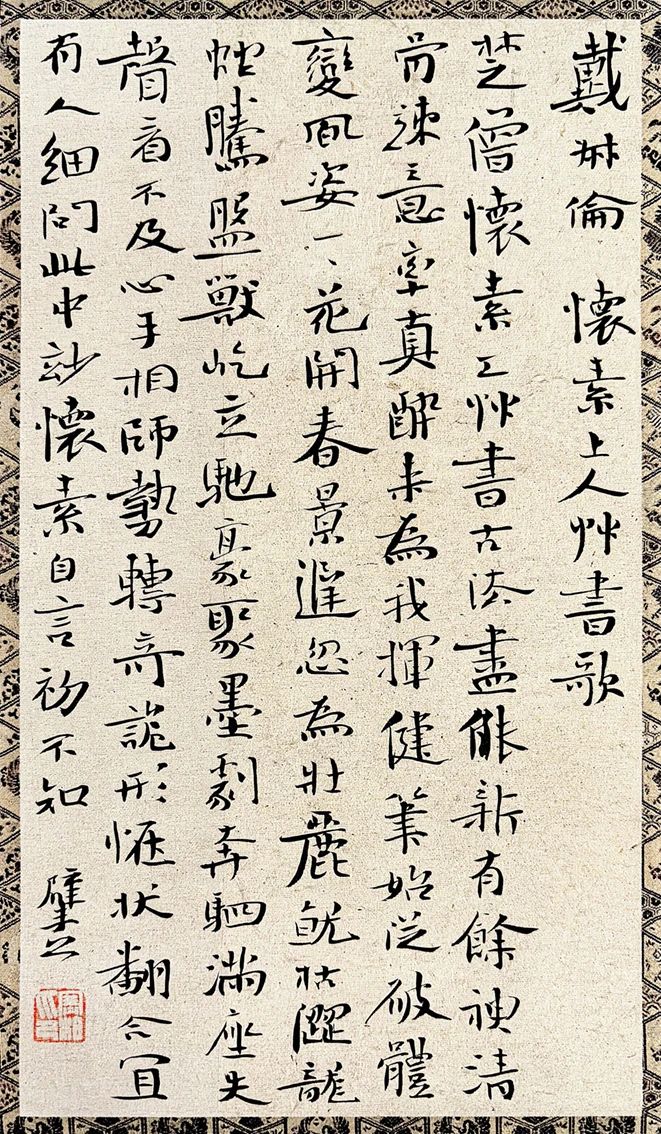 戴叔倫 懷素上人艸書歌
楚僧懷素工艸書古法盡能新有餘神清
骨竦意率真醉來為我揮健筆始從破體
變風姿一、花開春景遲忽為壯麗就枯澀龍
蛇騰盤獸屹立馳豪聚墨劇奔駟滿座失
聲看不及心手相師勢轉奇詭形恠狀翻合宜
有人細問此中玅懷素自言初不知